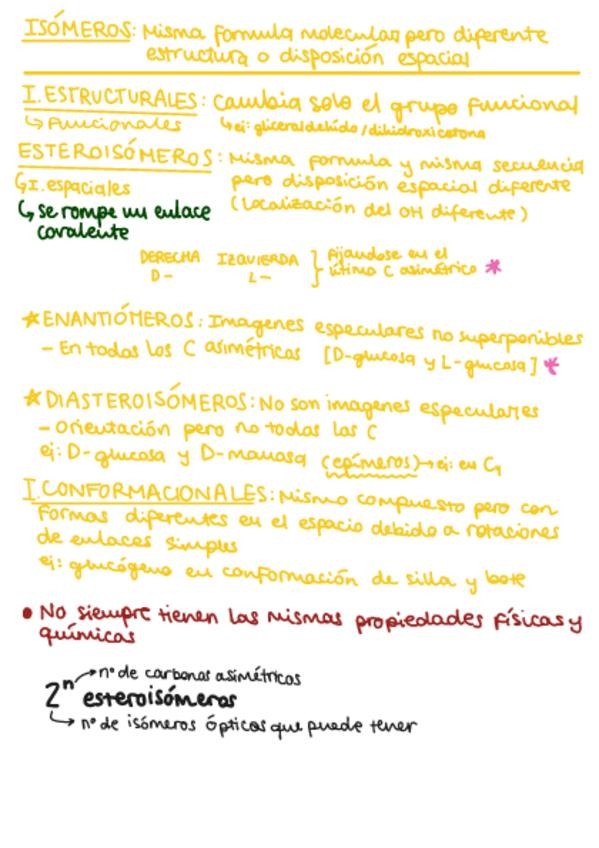 ISÓMEROS: Misma formula molecular pero diferente
estructura o disposición espacial
I. ESTRUCTURALES: Cambia solo el grupo funcional
↳ Funcionales ↳ ej: gliceraldehído / dihidroxicetona
ESTEROISÓMEROS: Misma formula y misma secuencia
↳ I. espaciales pero disposición espacial diferente
↳ se rompe un enlace (Localización del OH diferente)
covalente
DERECHA IZQUIERDA } Fijandose en el
D- L- último C asimétrico *
★ ENANTIÓMEROS: Imagenes especulares no superponibles
- En todos los C asimétricos [D-glucosa y L-glucosa] *
★ DIASTEROISÓMEROS: No son imagenes especulares
- Orientación pero no todos los C
ej: D-glucosa y D-manosa (epímeros) → ej: en C4
I. CONFORMACIONALES: Mismo compuesto pero con
formas diferentes en el espacio debido a rotaciones
de enlaces simples
ej: glucógeno en conformación de silla y bote
• No siempre tienen las mismas propiedades físicas y
químicas
→ nº de carbonos asimétricos
2ⁿ esteroisómeros
↳ nº de isómeros ópticos que puede tener